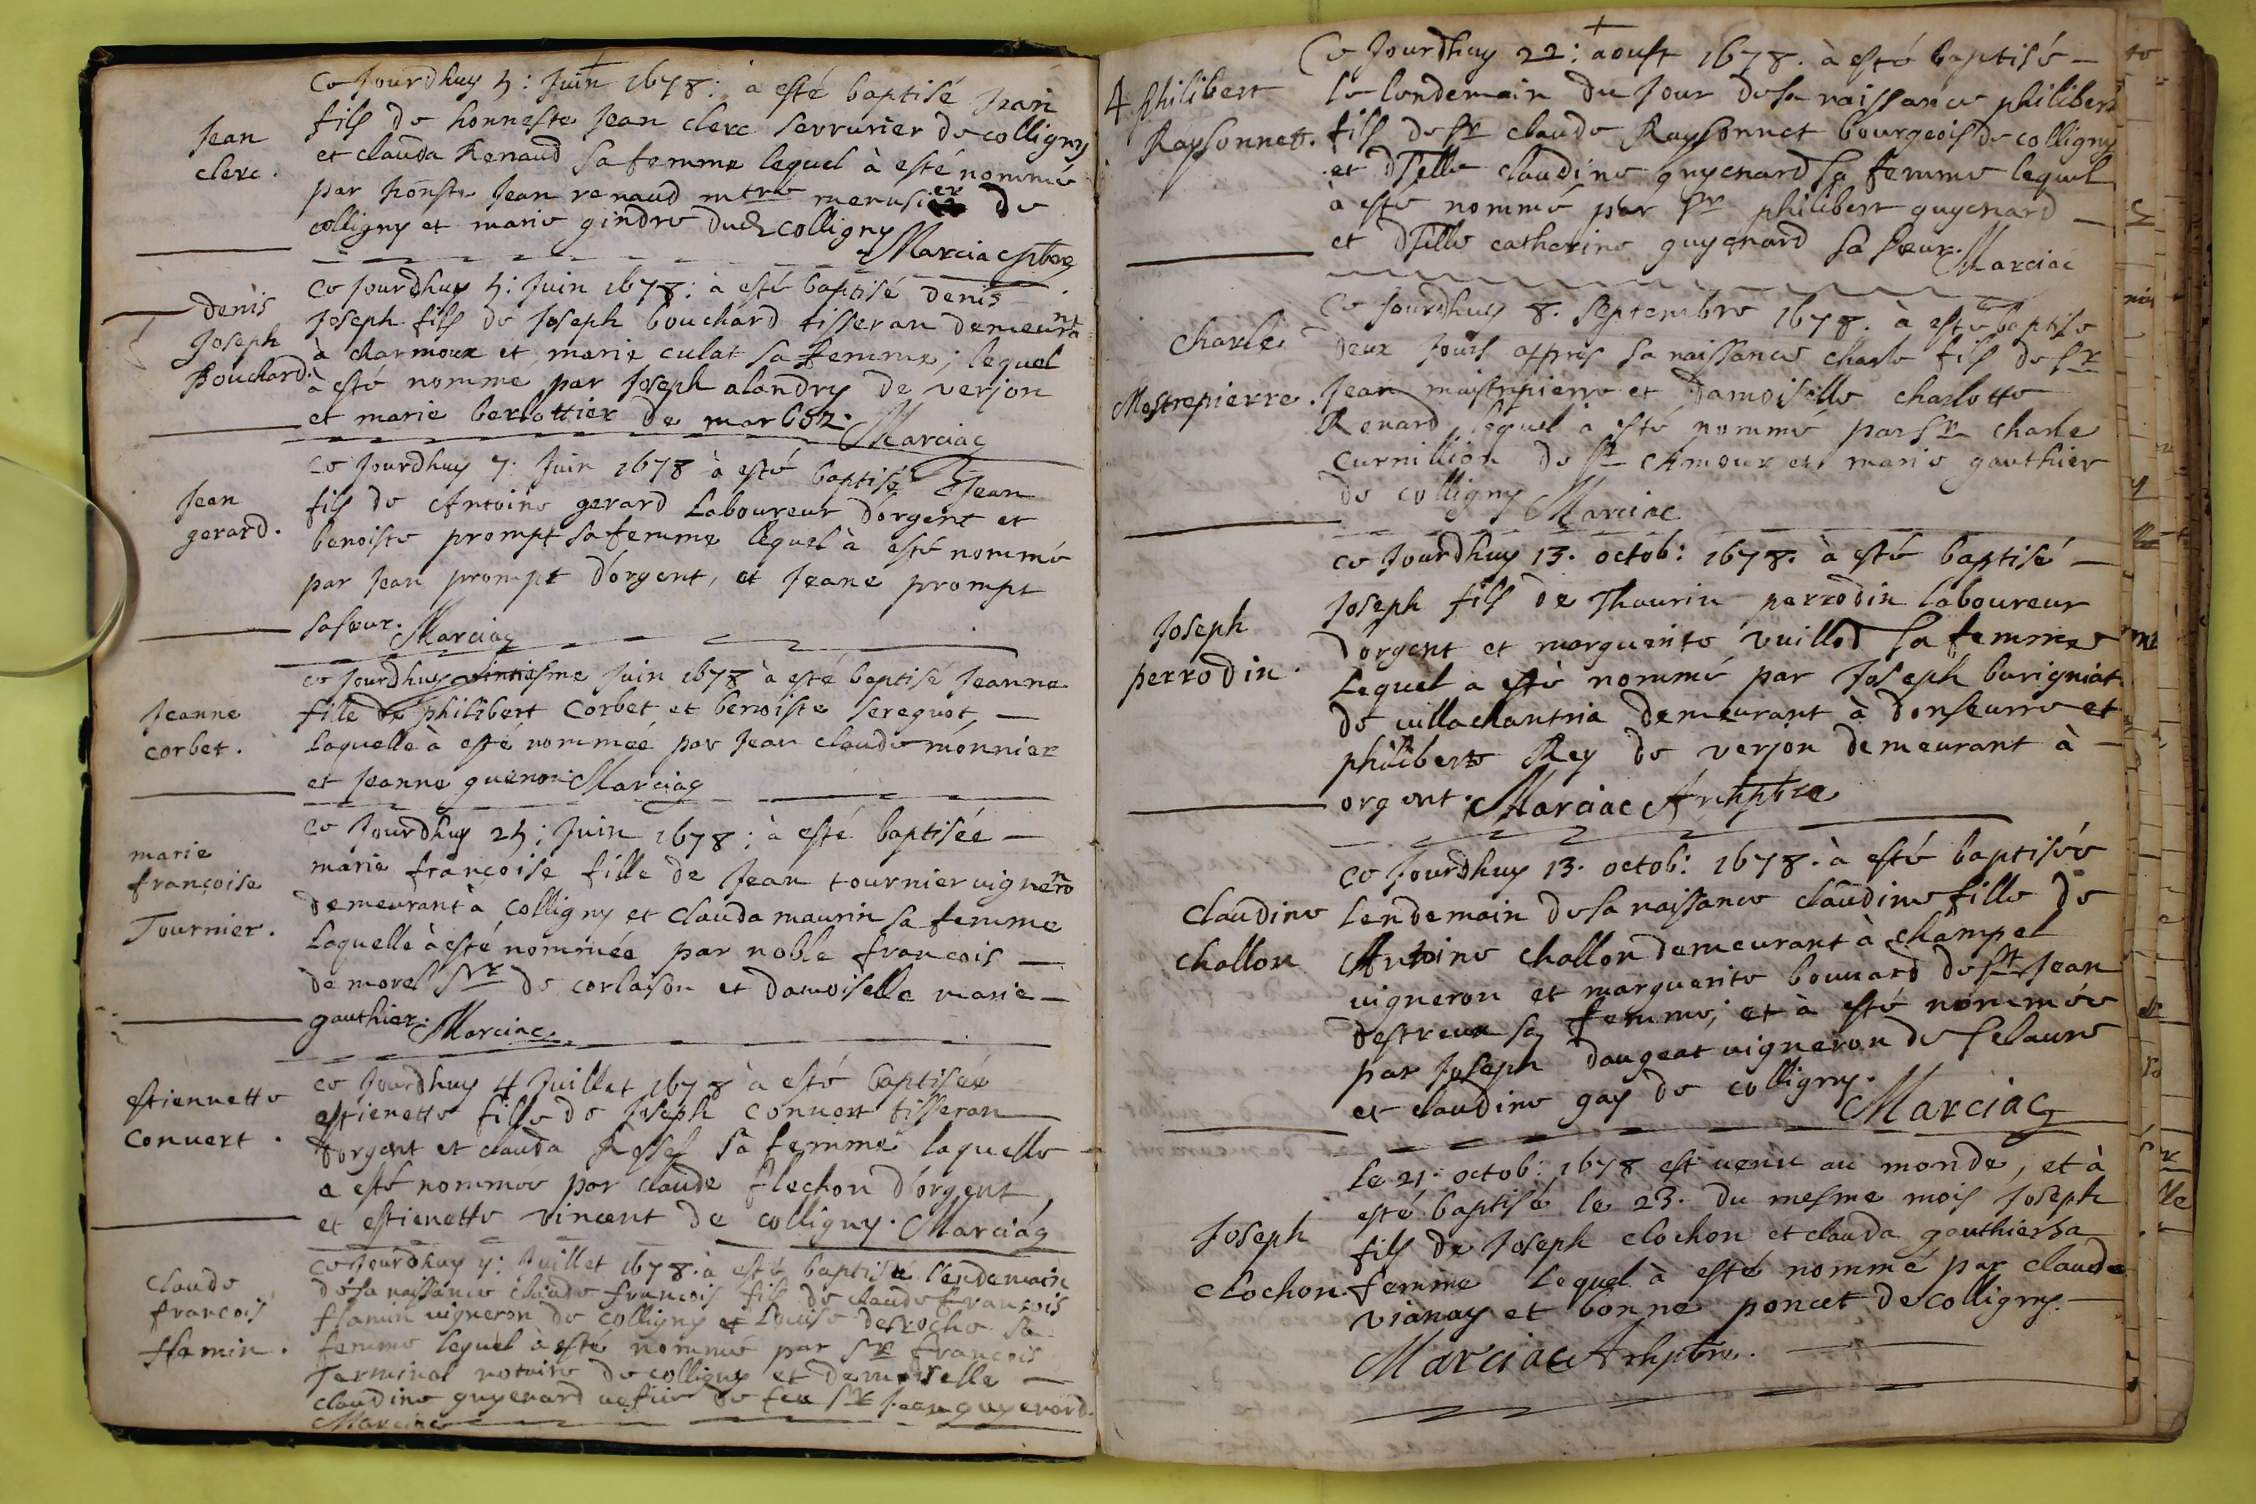 Jean
clerc.
Ce Jourdhuy 5: Juin 1678: à esté baptisé Jean
fils de honneste Jean clerc serrurier de colligny
et clauda Renaud sa femme lequel à esté nommé
par honste Jean renaud mtre menusier de
colligny et marie gindre dud colligny
Marciac ptbre
denis
Joseph
Bouchard.
Ce Jourdhuy 5: Juin 1678: à esté baptisé denis
Joseph fils de Joseph bouchard tisseran demeurnt
à charmoux et marie culat sa femme; lequel
à esté nommé par Joseph alandry de verjon
et marie berlottier de marboz. Marciac
Jean
gerard.
Ce Jourdhuy 7: Juin 1678 à esté baptisé Jean
fils de Antoine gerard Laboureur d'orgent et
benoiste prompt sa femme lequel à esté nommé
par Jean prompt d'orgent, et Jeane prompt
sa sœur. Marciac
Jeanne
corbet.
ce Jourdhuy vintiesme Juin 1678 à esté baptisé Jeanne
fille de philibert Corbet et benoiste sereguot,
Laquelle à esté nommée par Jean claude monnier
et Jeanne guenon Marciac
marie
françoise
Tournier.
Ce Jourdhuy 25: Juin 1678: à esté baptisée
marie françoise fille de Jean tournier vigneron
demeurant à colligny et clauda maurin sa femme
Laquelle à esté nommée par noble francois
de morel Sr de corlaison et damoiselle marie
gauthier. Marciac.
estiennette
convert.
ce Jourdhuy 4 Juillet 1678 à esté baptisée
estienette fille de Joseph convert tisseran
d'orgent et clauda Rossel sa femme laquelle
a esté nommée par claude flechon d'orgent
et estienette vincent de colligny. Marciac
claude
francois
flamin.
Ce Jourdhuy 7: Juillet 1678. à esté baptisé l'endemain
de sa naissance claude francois fils de claude francois
flamin vigneron de colligny et Louise desroche sa
femme lequel à esté nommé par Sr francois
Terminal notaire de colligny et demoiselle
claudine guyenard vefve de feu Sr Jean guyenard.
Marciac
4 philibert
Raysonnett.
Ce Jourdhuy 22: aoust 1678. à esté baptisé
le lendemain du Jour de sa naissance philibert
fils de Sr claude Raysonnet bourgeois de colligny
et dlle claudine guyenard sa femme lequel
à esté nommé par Sr philibert guyenard
et dlle catherine guyenard sa sœur. Marciac
charle
Mestrepierre.
Ce Jourdhuy 8. Septembre 1678. à esté baptisé
deux Jours appres sa naissance charle fils de Sr
Jean maistrepierre et damoiselle charlotte
Renard lequel à esté nommé par Sr charle
Curnillion de St Amour et marie gauthier
de colligny Marciac
Joseph
perrodin.
ce Jourdhuy 13. octob: 1678. à esté baptisé
Joseph fils de Thaurin perrodin laboureur
d'orgent et marguerite vuillod sa femme
Lequel a esté nommé par Joseph burigniat
de villachantria demeurant à donseurre et
philiberte Rey de verjon demeurant à
orgent. Marciac Archptbre
claudine
challon
ce Jourdhuy 13. octob: 1678. à esté baptisée
lendemain de sa naissance claudine fille de
Antoine challon demeurant à champel
vigneron et marguerite bouuard de St Jean
destreux sa femme, et à esté nommée
par Joseph daugeat vigneron de
et claudine gay de colligny.
Marciac
Joseph
clochon
Le 21. octob: 1678 est venu au monde, et à
esté baptisé le 23. du mesme mois Joseph
fils de Joseph clochon et clauda gauthier sa
femme Lequel à esté nommé par claude
vianay et bonne poncet de colligny.
Marciac Archptbre.